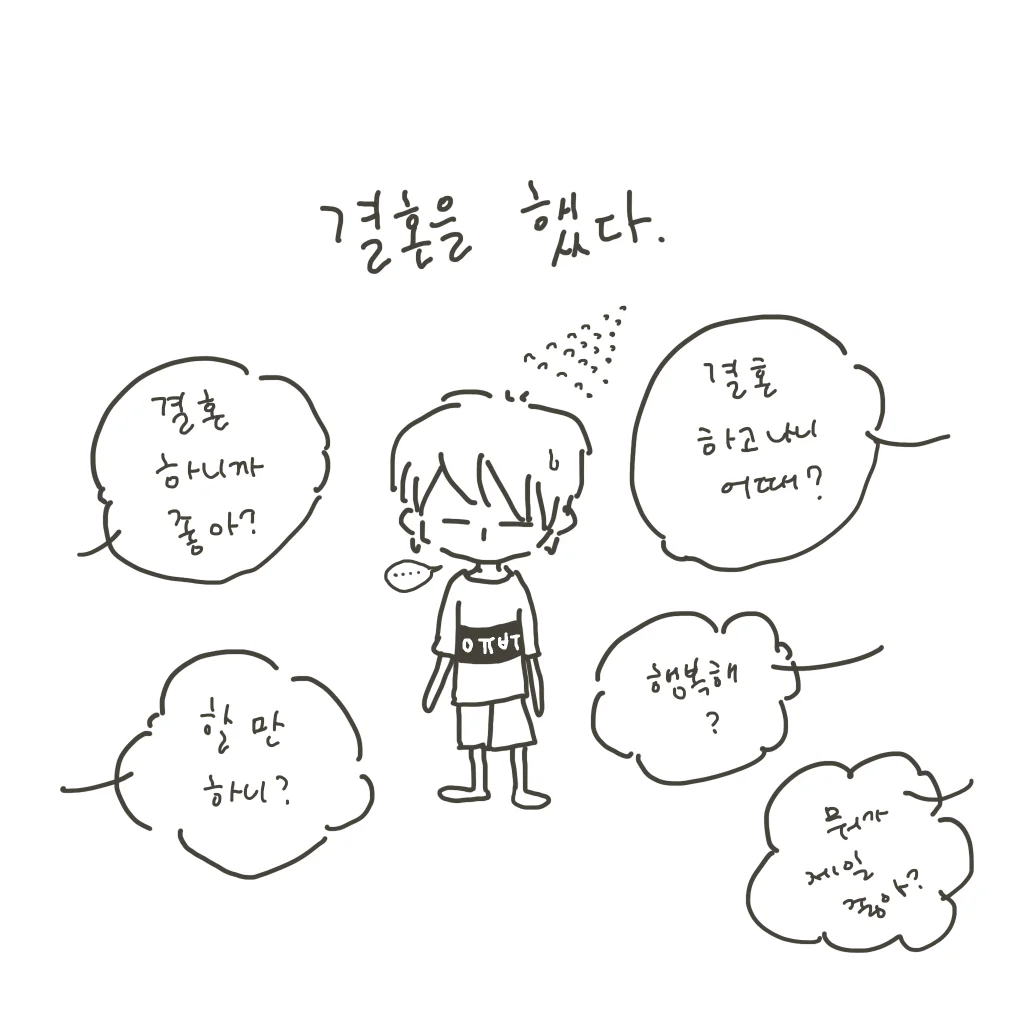 결혼을 했다.
결혼
하니까
좋아?
결혼
하고나니
어때?
.....
할 만
하니?
행복해
?
뭐가
제일
좋아?